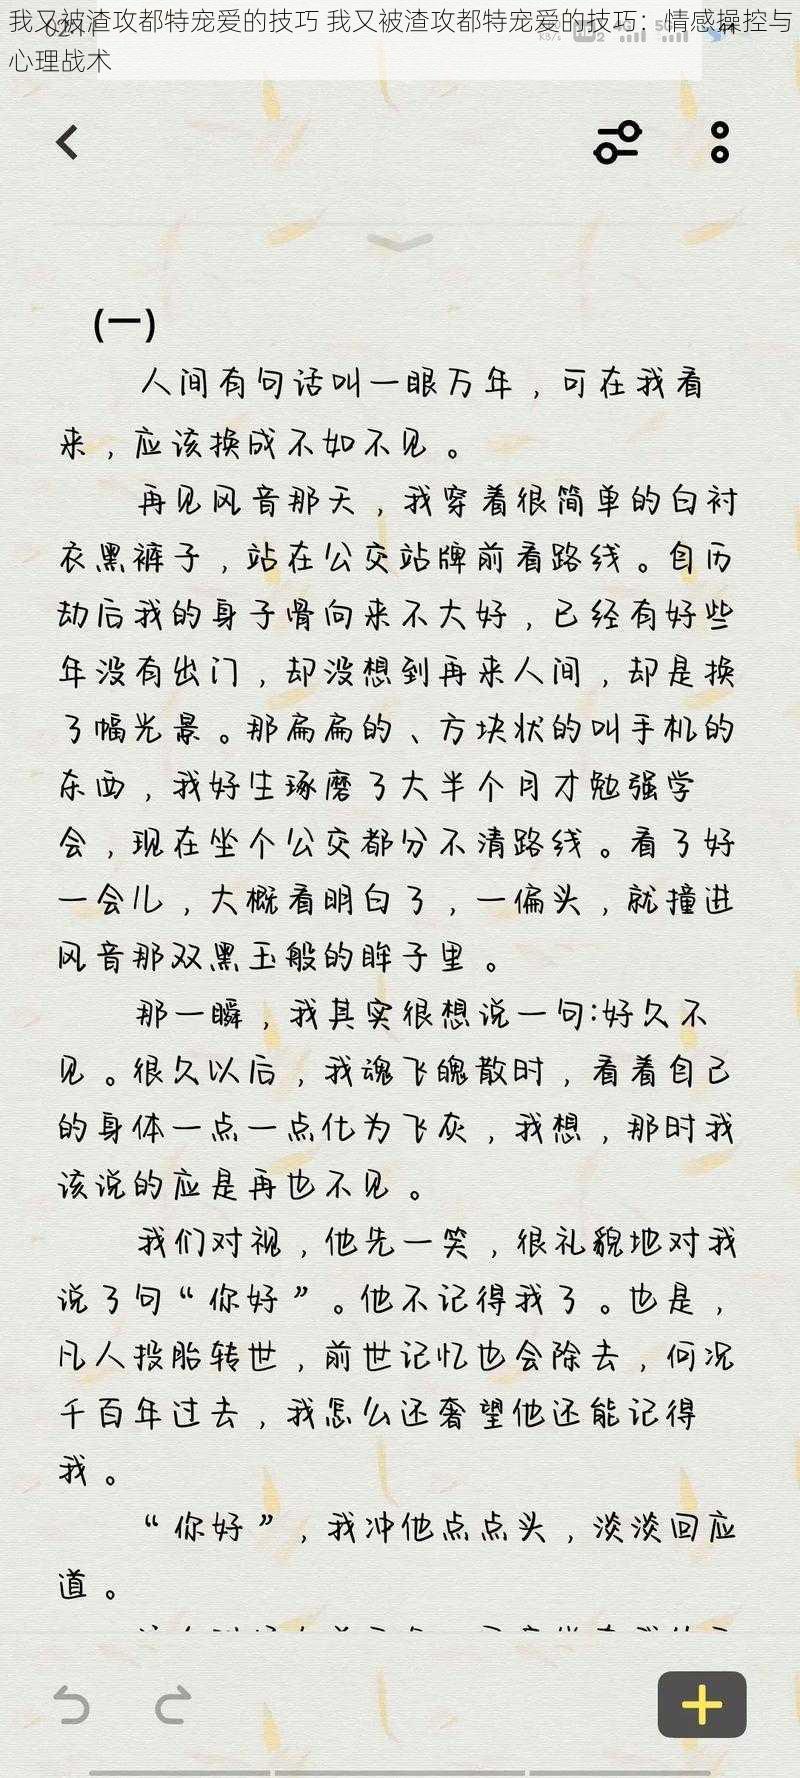 我又被渣攻都特宠爱的技巧 我又被渣攻都特宠爱的技巧：情感操控与
心理战术
(一)
人间有句话叫一眼万年，可在我看
来，应该换成不如不见。
再见风音那天，我穿着很简单的白衬
衣黑裤子，站在公交站牌前看路线。自历
劫后我的身子骨向来不大好，已经有好些
年没有出门，却没想到再来人间，却是换
了幅光景。那扁扁的、方块状的叫手机的
东西，我好生琢磨了大半个月才勉强学
会，现在坐个公交都分不清路线。看了好
一会儿，大概看明白了，一偏头，就撞进
风音那双黑玉般的眸子里。
那一瞬，我其实很想说一句:好久不
见。很久以后，我魂飞魄散时，看着自己
的身体一点一点化为飞灰，我想，那时我
该说的应是再也不见。
我们对视，他先一笑，很礼貌地对我
说了句“你好”。他不记得我了。也是，
凡人投胎转世，前世记忆也会除去，何况
千百年过去，我怎么还奢望他还能记得
我。
“你好”，我冲他点点头，淡淡回应
道。